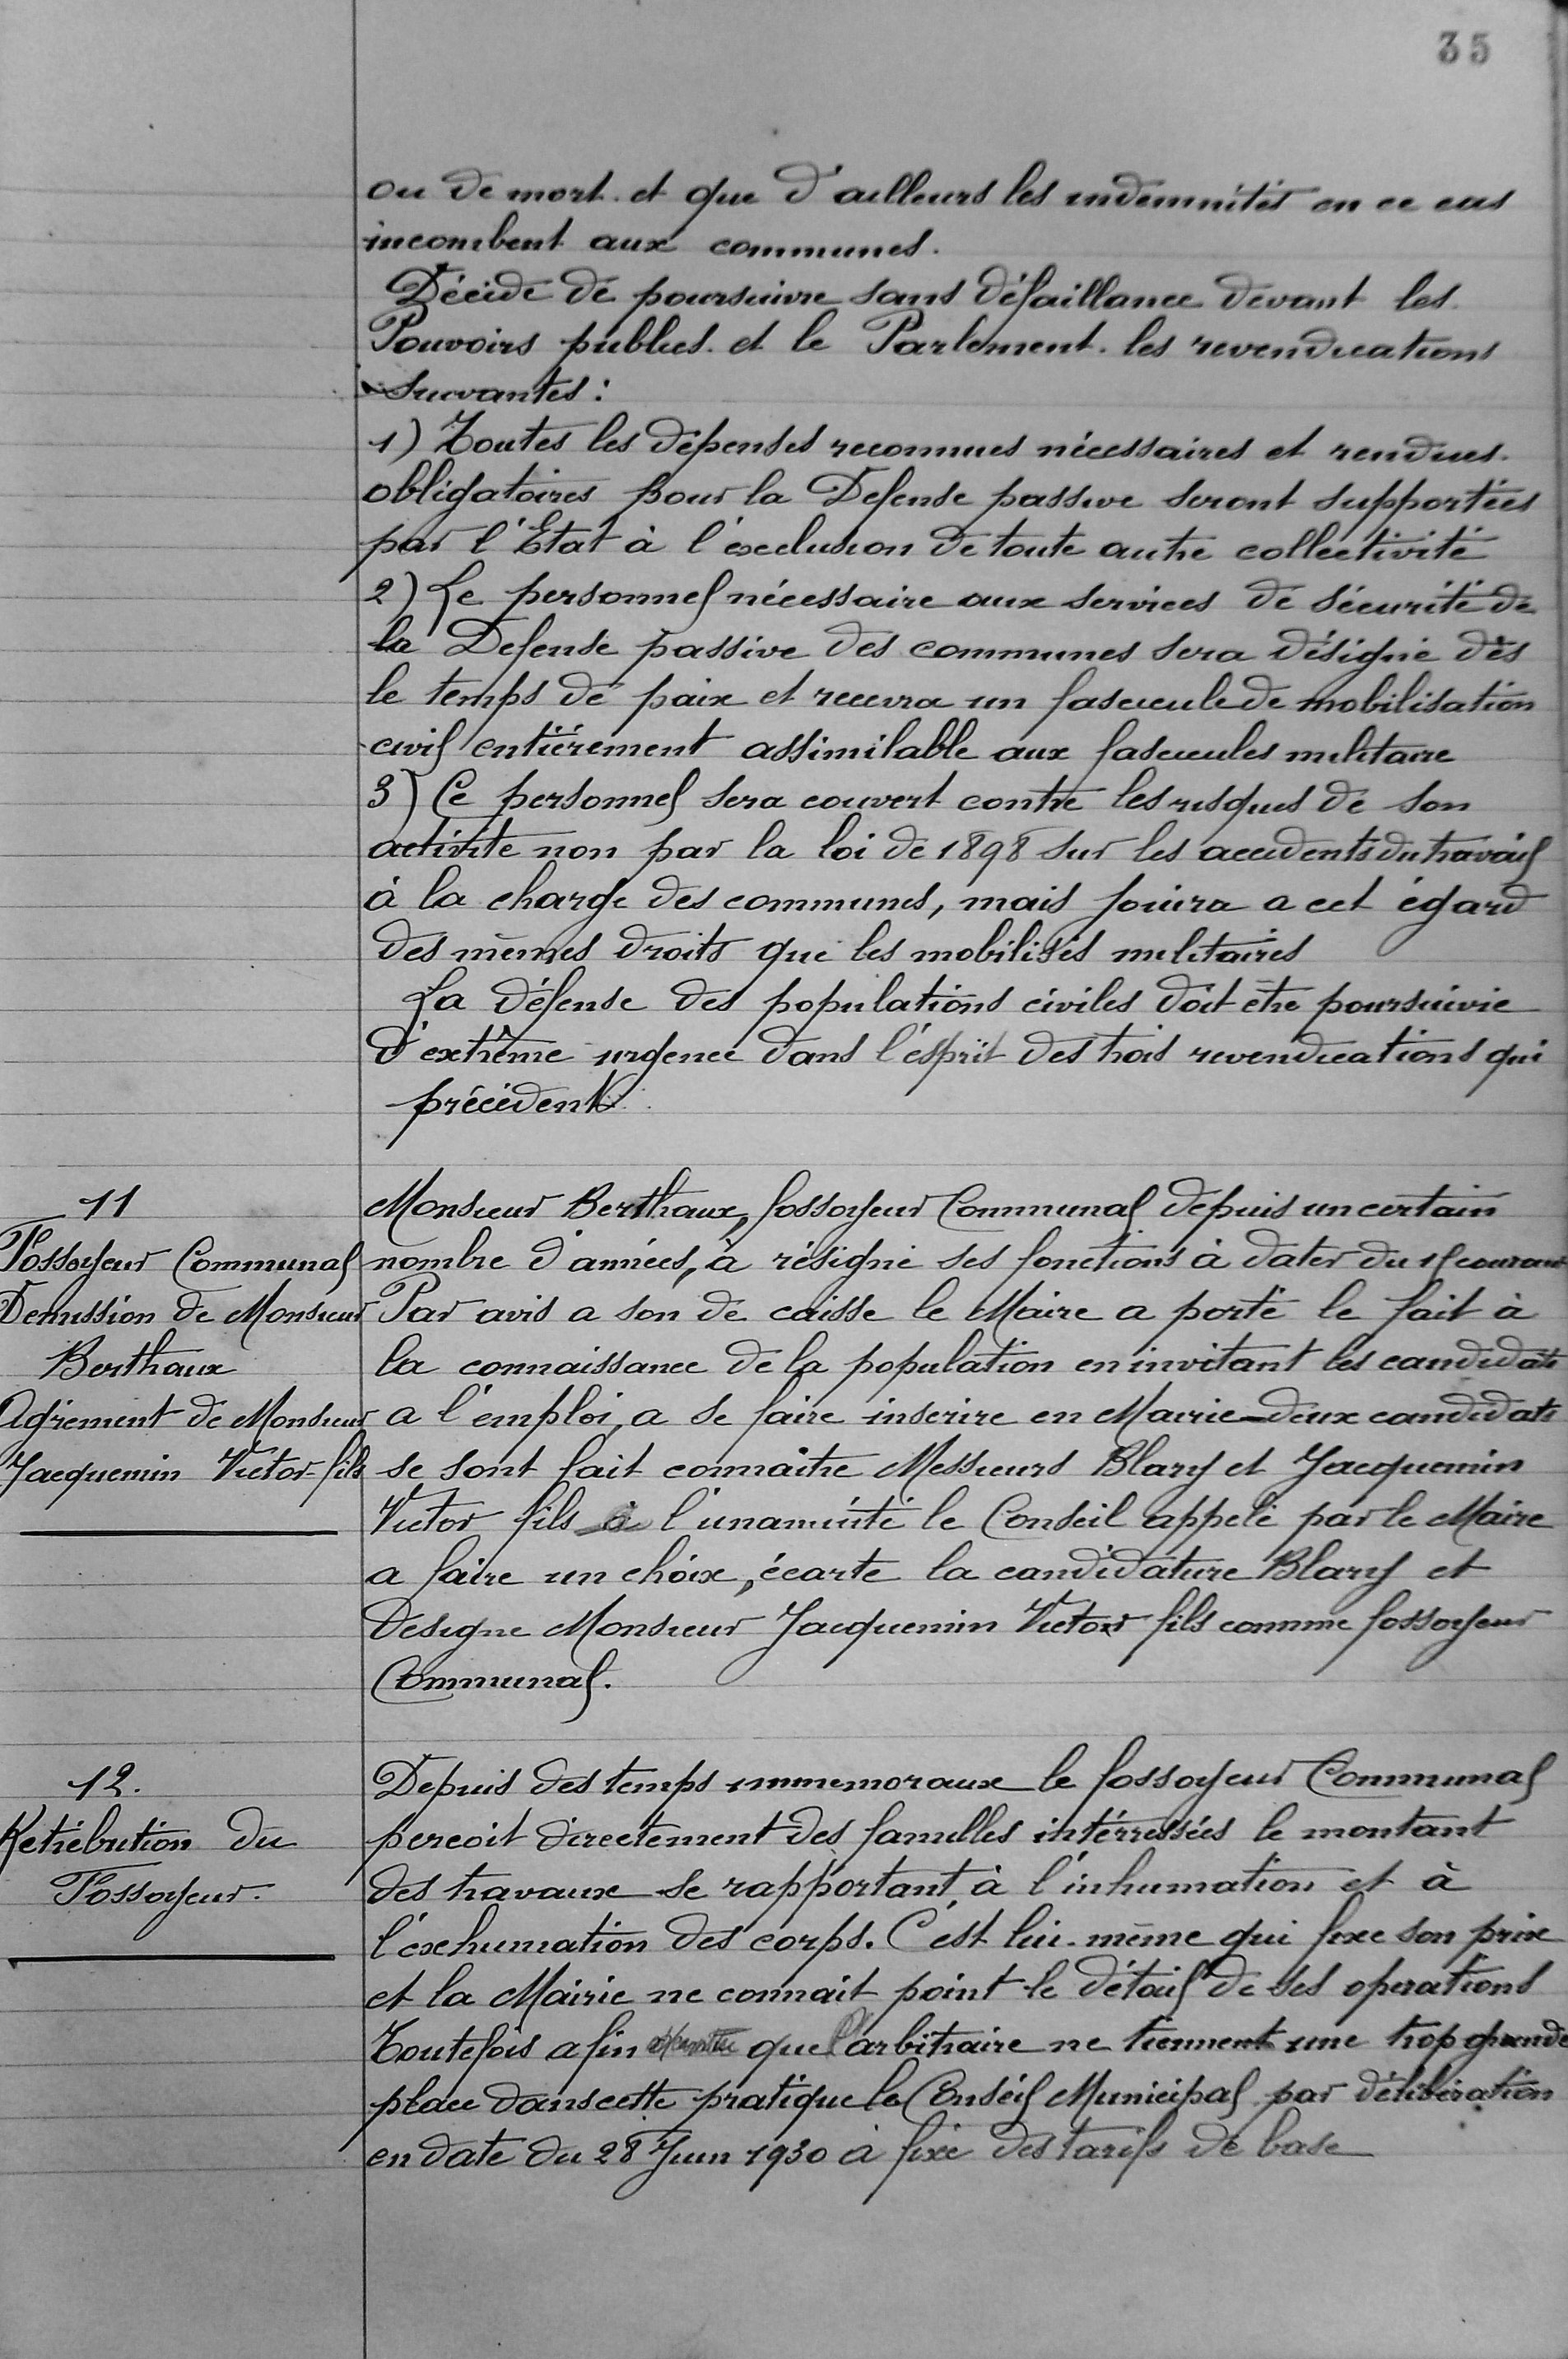 35
ou de mort. et que d'ailleurs les indemnités en ce cas
incombent aux communes.
Décide de poursuivre sans défaillance devant les
Pouvoirs publics. et le Parlement. les revendications
suivantes :
1) Toutes les dépenses reconnues nécessaires et rendues.
obligatoires pour la Defense passive seront supportées
par l'Etat à l'exclusion de toute autre collectivité
2) Le personnel nécessaire aux services de sécurité de
la Defense passive des communes sera désigné dès
le temps de paix et recevra un fascicule de mobilisation
civil entièrement assimilable aux fascicules militaire
3) Ce personnel sera couvert contre les risques de son
activite non par la loi de 1898 sur les accidents du travail
à la charge des communes, mais jouira a cet égard
des mêmes droits que les mobilisés militaires
La défense des populations civiles doit être poursuivie
d'extrême urgence dans l'esprit des trois revendications qui
précédent.
11
Fossoyeur Communal
Demission de Monsieur
Berthaux
Agrément de Monsieur
Jacquemin Victor-fils
Monsieur Berthaux, fossoyeur Communal depuis un certain
nombre d'années, à résigné ses fonctions à dater du courant
Par avis a son de caisse le Maire a porté le fait à
la connaissance de la population en invitant les candidats
a l'emploi, a se faire inscrire en Mairie - deux candidats
se sont fait connaître Messieurs Blary et Jacquemin
Victor fils à l'unanimité le Conseil appelé par le Maire
a faire un choix, écarte la candidature Blary et
designe Monsieur Jacquemin Victor fils comme fossoyeur
Communal.
12.
Retribution du
Fossoyeur.
Depuis des temps immemoraux le fossoyeur Communal
percoit directement des familles intérressées le montant
des travaux se rapportant à l'inhumation et à
l'exhumation des corps. C'est lui-même qui fixe son prix
et la Mairie ne connait point le détail de ses operations
Toutefois afin que l'arbitraire ne tiennent une trop grande
place dans cette pratique le Conseil Municipal par délibération
en date du 28 Juin 1930 à fixé des tarifs de base